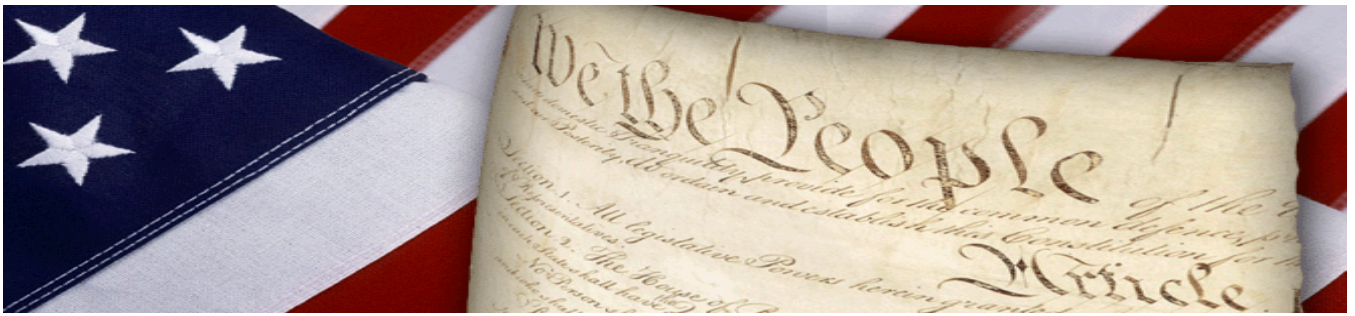 We the People of the
domestic Tranquility, provide for the common defence,
and our Posterity, do ordain and establish this Constitution for
Article.
Section. 1. All legislative Powers herein granted
of Representatives.
Section. 2. The House of
in each State shall have
No Person